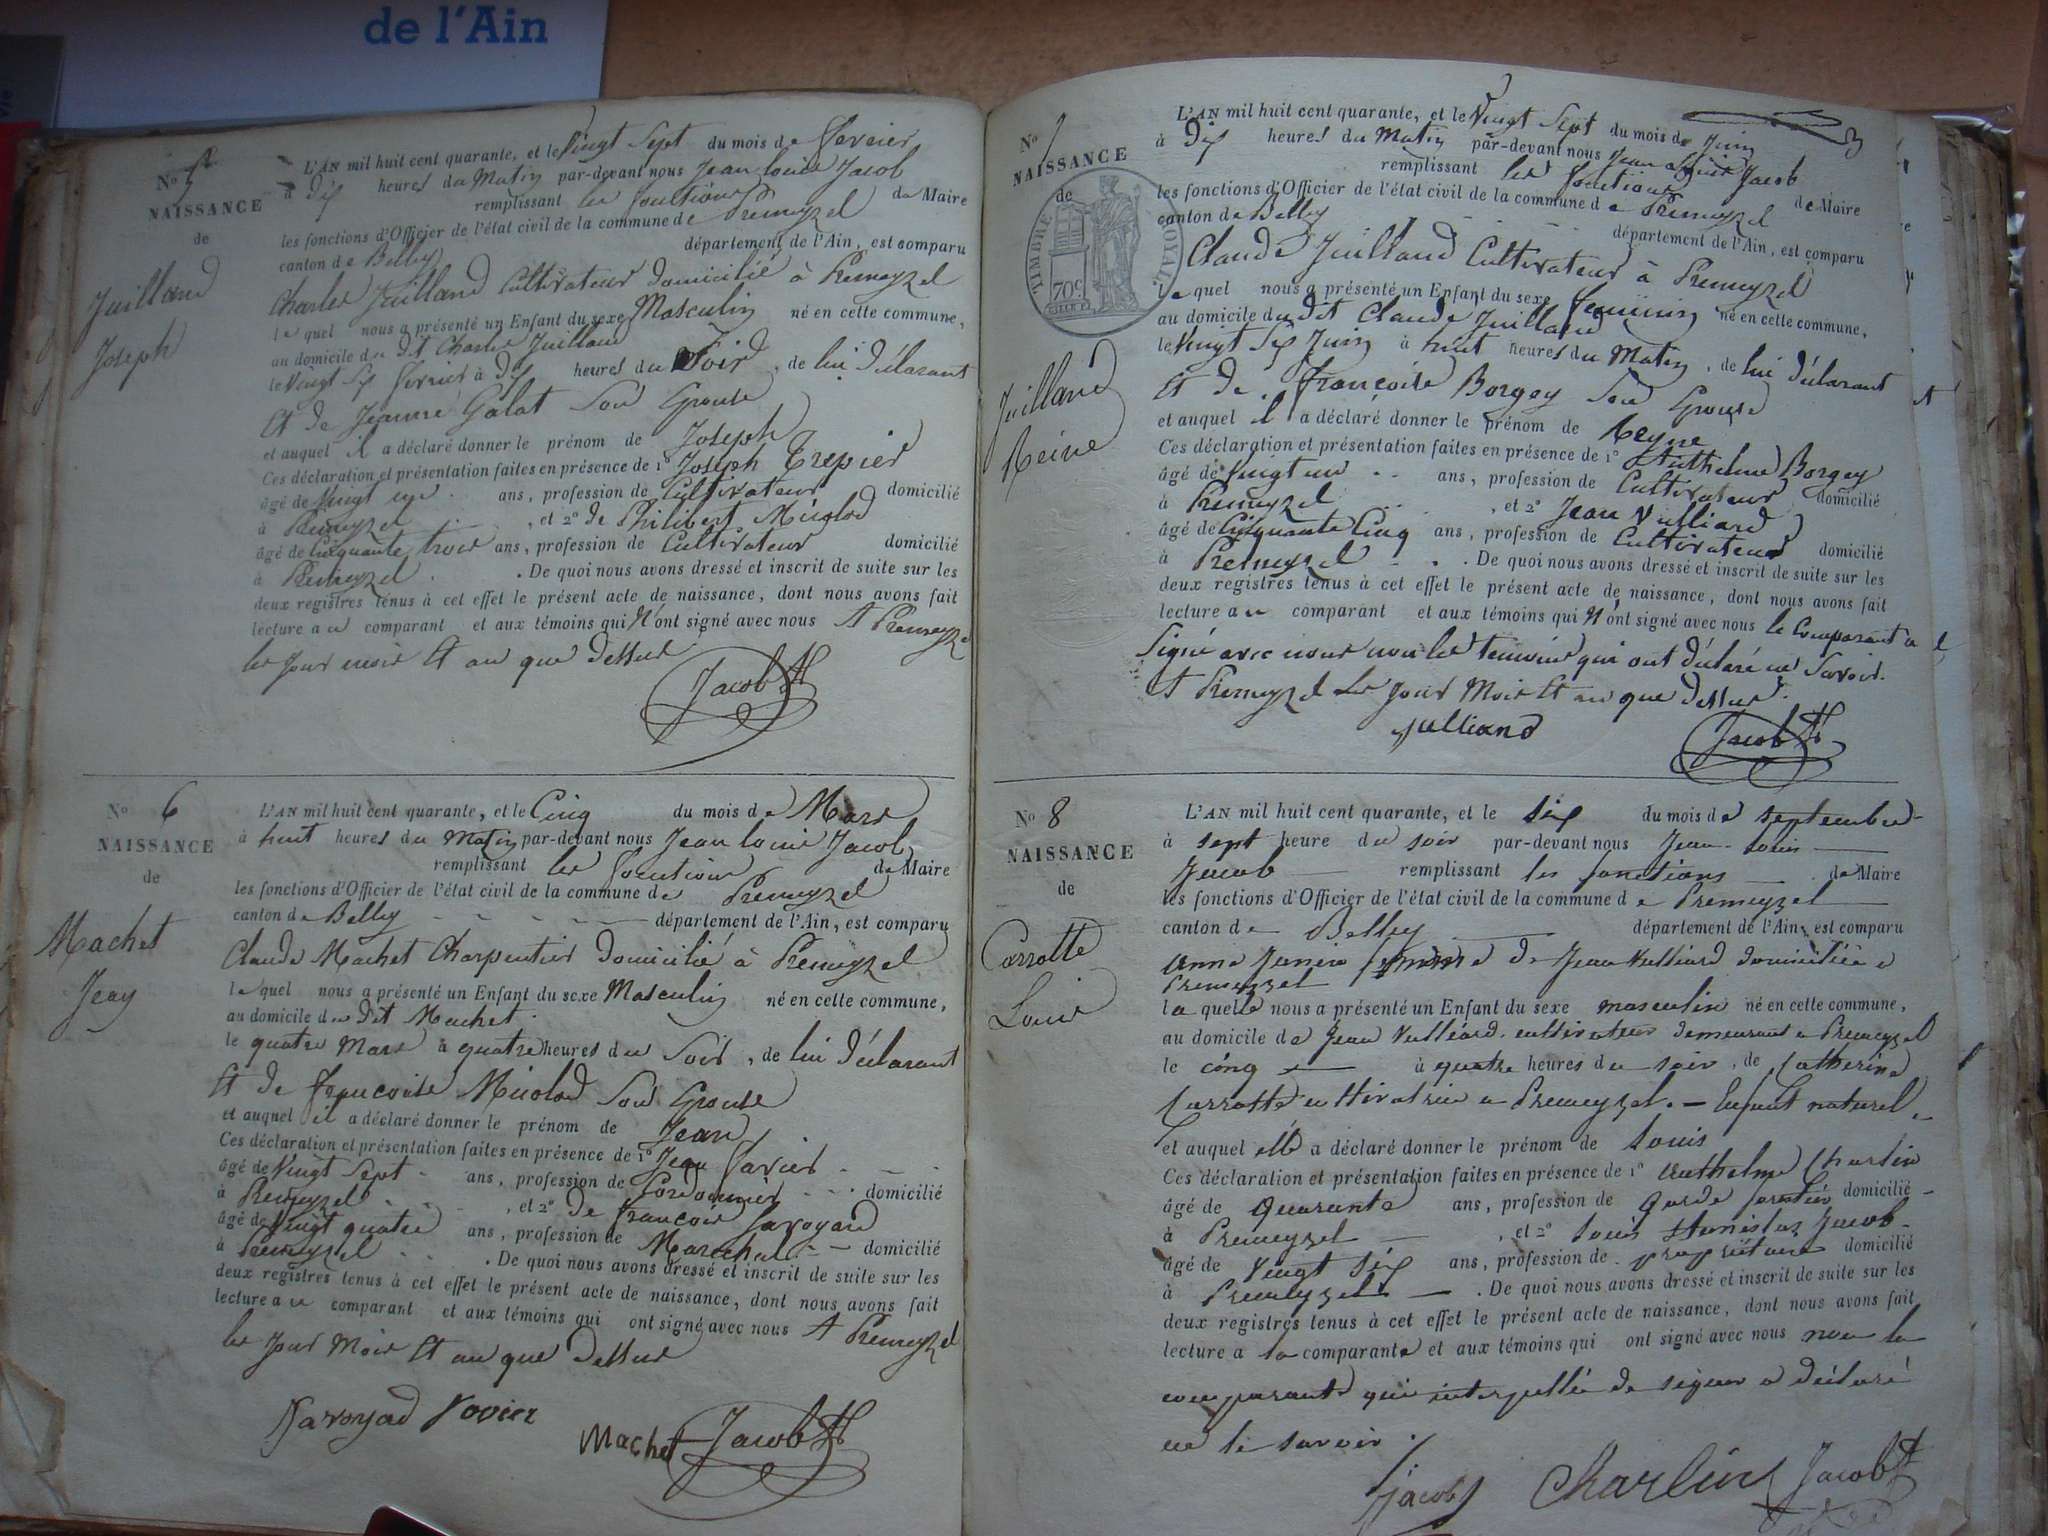 de l'Ain
N° 5
NAISSANCE
de
Juilland
Joseph
L'AN mil huit cent quarante, et le Vingt Sept du mois de fevrier
à Dix heures du Matin par-devant nous Jean louis Jacob
remplissant les fonctions de Maire
les fonctions d'Officier de l'état civil de la commune de Premeyzel
canton de Belley département de l'Ain, est comparu
Charles Juilland Cultivateur domicilié à Premeyzel
lequel nous a présenté un Enfant du sexe Masculin né en cette commune,
au domicile du dit Charles Juilland
le Vingt Six fevrier à Dix heures du Soir, de lui déclarant
Et de Jeanne Galat Son Epouse
et auquel il a déclaré donner le prénom de Joseph
Ces déclaration et présentation faites en présence de 1° Joseph Trepier
âgé de Vingt ans, profession de Cultivateur domicilié
à Premeyzel, et 2° de Philibert Micolod
âgé de Cinquante trois ans, profession de Cultivateur domicilié
à Premeyzel. De quoi nous avons dressé et inscrit de suite sur les
deux registres tenus à cet effet le présent acte de naissance, dont nous avons fait
lecture au comparant et aux témoins qui N'ont signé avec nous A Premeyzel
les Jour mois Et an que Dessus
Jacob
N° 6
NAISSANCE
de
Machet
Jean
L'AN mil huit cent quarante, et le Cinq du mois de Mars
à huit heures du Matin par-devant nous Jean louis Jacob
remplissant les fonctions de Maire
les fonctions d'Officier de l'état civil de la commune de Premeyzel
canton de Belley département de l'Ain, est comparu
Claude Machet Charpentier Domicilié à Premeyzel
lequel nous a présenté un Enfant du sexe Masculin né en cette commune,
au domicile du Dit Machet
le quatre Mars à quatre heures du Soir, de lui déclarant
Et de françoise Micolod Son Epouse
et auquel il a déclaré donner le prénom de Jean
Ces déclaration et présentation faites en présence de 1° Jean
âgé de Vingt Sept ans, profession de Cordonnier domicilié
à Premeyzel, et 2° de françois Savoyard
âgé de Vingt quatre ans, profession de Marechal domicilié
à Premeyzel. De quoi nous avons dressé et inscrit de suite sur les
deux registres tenus à cet effet le présent acte de naissance, dont nous avons fait
lecture au comparant et aux témoins qui ont signé avec nous A Premeyzel
les Jour Mois Et an que Dessus
Savoyard
Machet Jacob
N° 7
NAISSANCE
de
TIMBRE ROYAL
70c
Juilland
Reine
L'AN mil huit cent quarante, et le Vingt Sept du mois de Juin
à Dix heures du Matin par-devant nous Jean louis Jacob
remplissant les fonctions de Maire
les fonctions d'Officier de l'état civil de la commune de Premeyzel
canton de Belley département de l'Ain, est comparu
Claude Juilland Cultivateur à Premeyzel
lequel nous a présenté un Enfant du sexe feminin né en cette commune,
au domicile du dit Claude Juilland
le Vingt Six Juin à huit heures du Matin, de lui déclarant
Et de françoise Borgey Son Epouse
et auquel il a déclaré donner le prénom de Reyne
Ces déclaration et présentation faites en présence de 1° Anthelme Borgey
âgé de Vingt un ans, profession de Cultivateur domicilié
à Premeyzel, et 2° Jean Vulliard
âgé de Cinquante Cinq ans, profession de Cultivateur domicilié
à Premeyzel. De quoi nous avons dressé et inscrit de suite sur les
deux registres tenus à cet effet le présent acte de naissance, dont nous avons fait
lecture au comparant et aux témoins qui N'ont signé avec nous le Comparant a
Signé avec nous non les temoins qui ont déclaré ne Savoir.
A Premeyzel Les Jour Mois Et an que Dessus.
Julliand Jacob
N° 8
NAISSANCE
de
Carrotte
Louis
L'AN mil huit cent quarante, et le six du mois de septembre
à sept heure du soir par-devant nous Jean Louis
Jacob remplissant les fonctions de Maire
les fonctions d'Officier de l'état civil de la commune de Premeyzel
canton de Belley département de l'Ain, est comparu
anne femme de Jean Vulliard domiciliée a
Premeyzel
laquelle nous a présenté un Enfant du sexe masculin né en cette commune,
au domicile de Jean Vulliard cultivateur demeurant a Premeyzel
le cinq à quatre heures du soir, de Catherine
Carrotte cultivatrice a Premeyzel. — Enfant naturel
et auquel elle a déclaré donner le prénom de Louis
Ces déclaration et présentation faites en présence de 1° anthelme Charlin
âgé de quarante ans, profession de garde forestier domicilié
à Premeyzel, et 2° Louis Stanislas Jacob
âgé de vingt six ans, profession de propriétaire domicilié
à Premeyzel. De quoi nous avons dressé et inscrit de suite sur les
deux registres tenus à cet effet le présent acte de naissance, dont nous avons fait
lecture a la comparante et aux témoins qui ont signé avec nous non la
comparante qui interpellée de signer a déclaré
ne le savoir.
Jacob Charlin Jacob